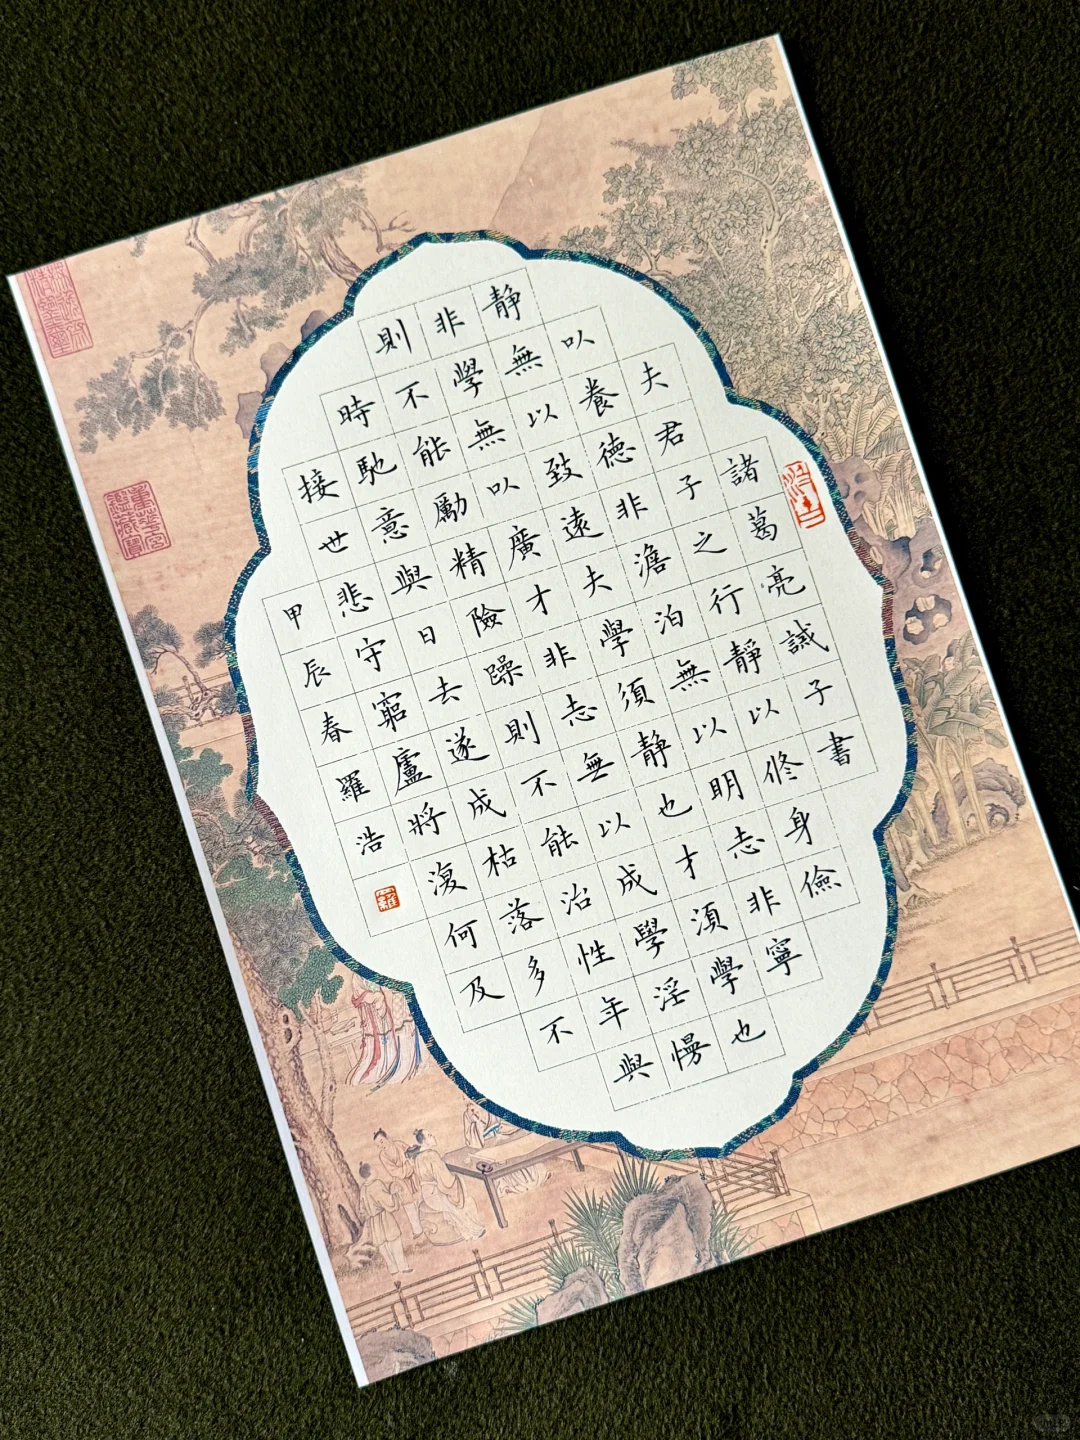 諸葛亮誡子書
夫君子之行靜以修身儉
以養德非澹泊無以明志非寧
静無以致遠夫學須静也才須學也
非學無以廣才非志無以成學淫慢
則不能勵精險躁則不能治性年與
時馳意與日去遂成枯落多不
接世悲守窮廬將復何及
甲辰春羅浩
羅